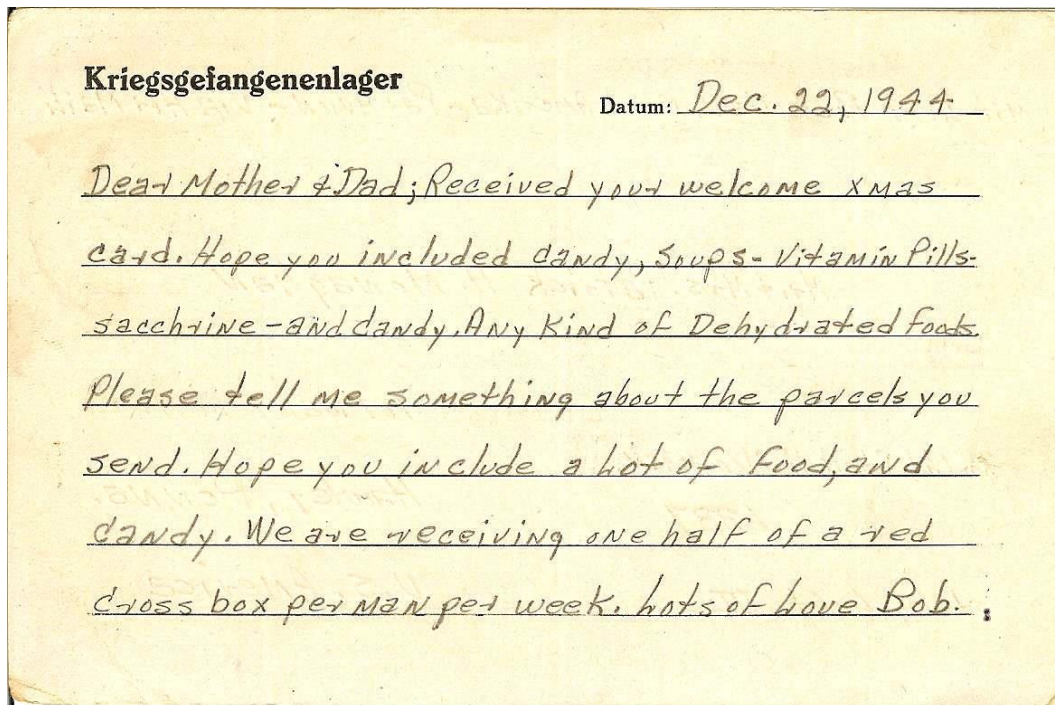 Kriegsgefangenenlager
Datum: Dec. 22, 1944
Dear Mother & Dad; Received your welcome xmas
card. Hope you included candy, soups - Vitamin Pills-
sacchrine - and candy. Any Kind of Dehydrated foods.
Please tell me something about the parcels you
send. Hope you include a Lot of Food, and
candy. We are receiving one half of a red
cross box per man per week. Lots of Love Bob.